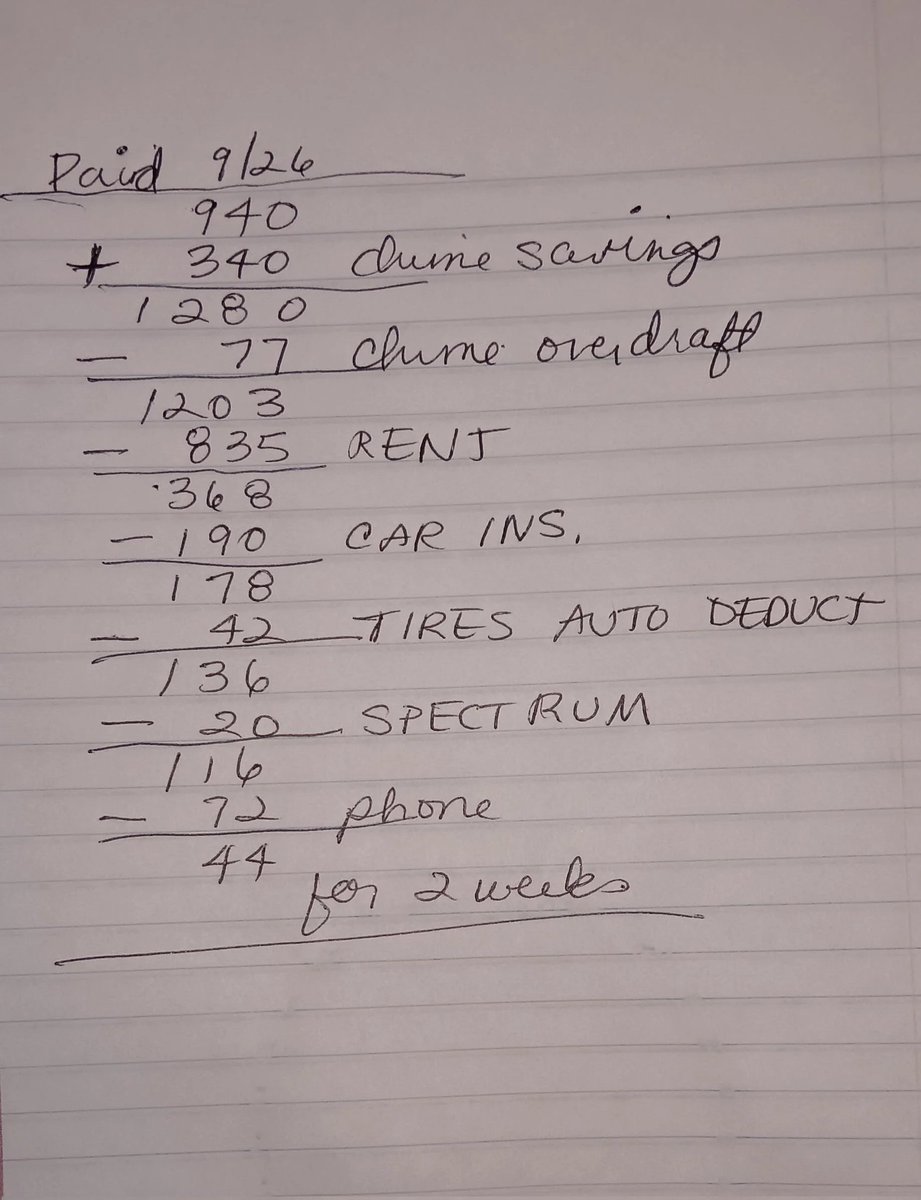 Paid 9/26
940
+ 340 chime savings
1280
- 77 chime overdraft
1203
- 835 RENT
368
- 190 CAR INS.
178
- 42 TIRES AUTO DEDUCT
136
- 20 SPECTRUM
116
- 72 phone
44
for 2 weeks